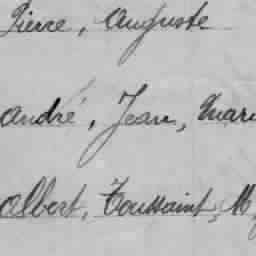 Pierre, Auguste
André, Jean, Mari
Albert, Toussaint, M